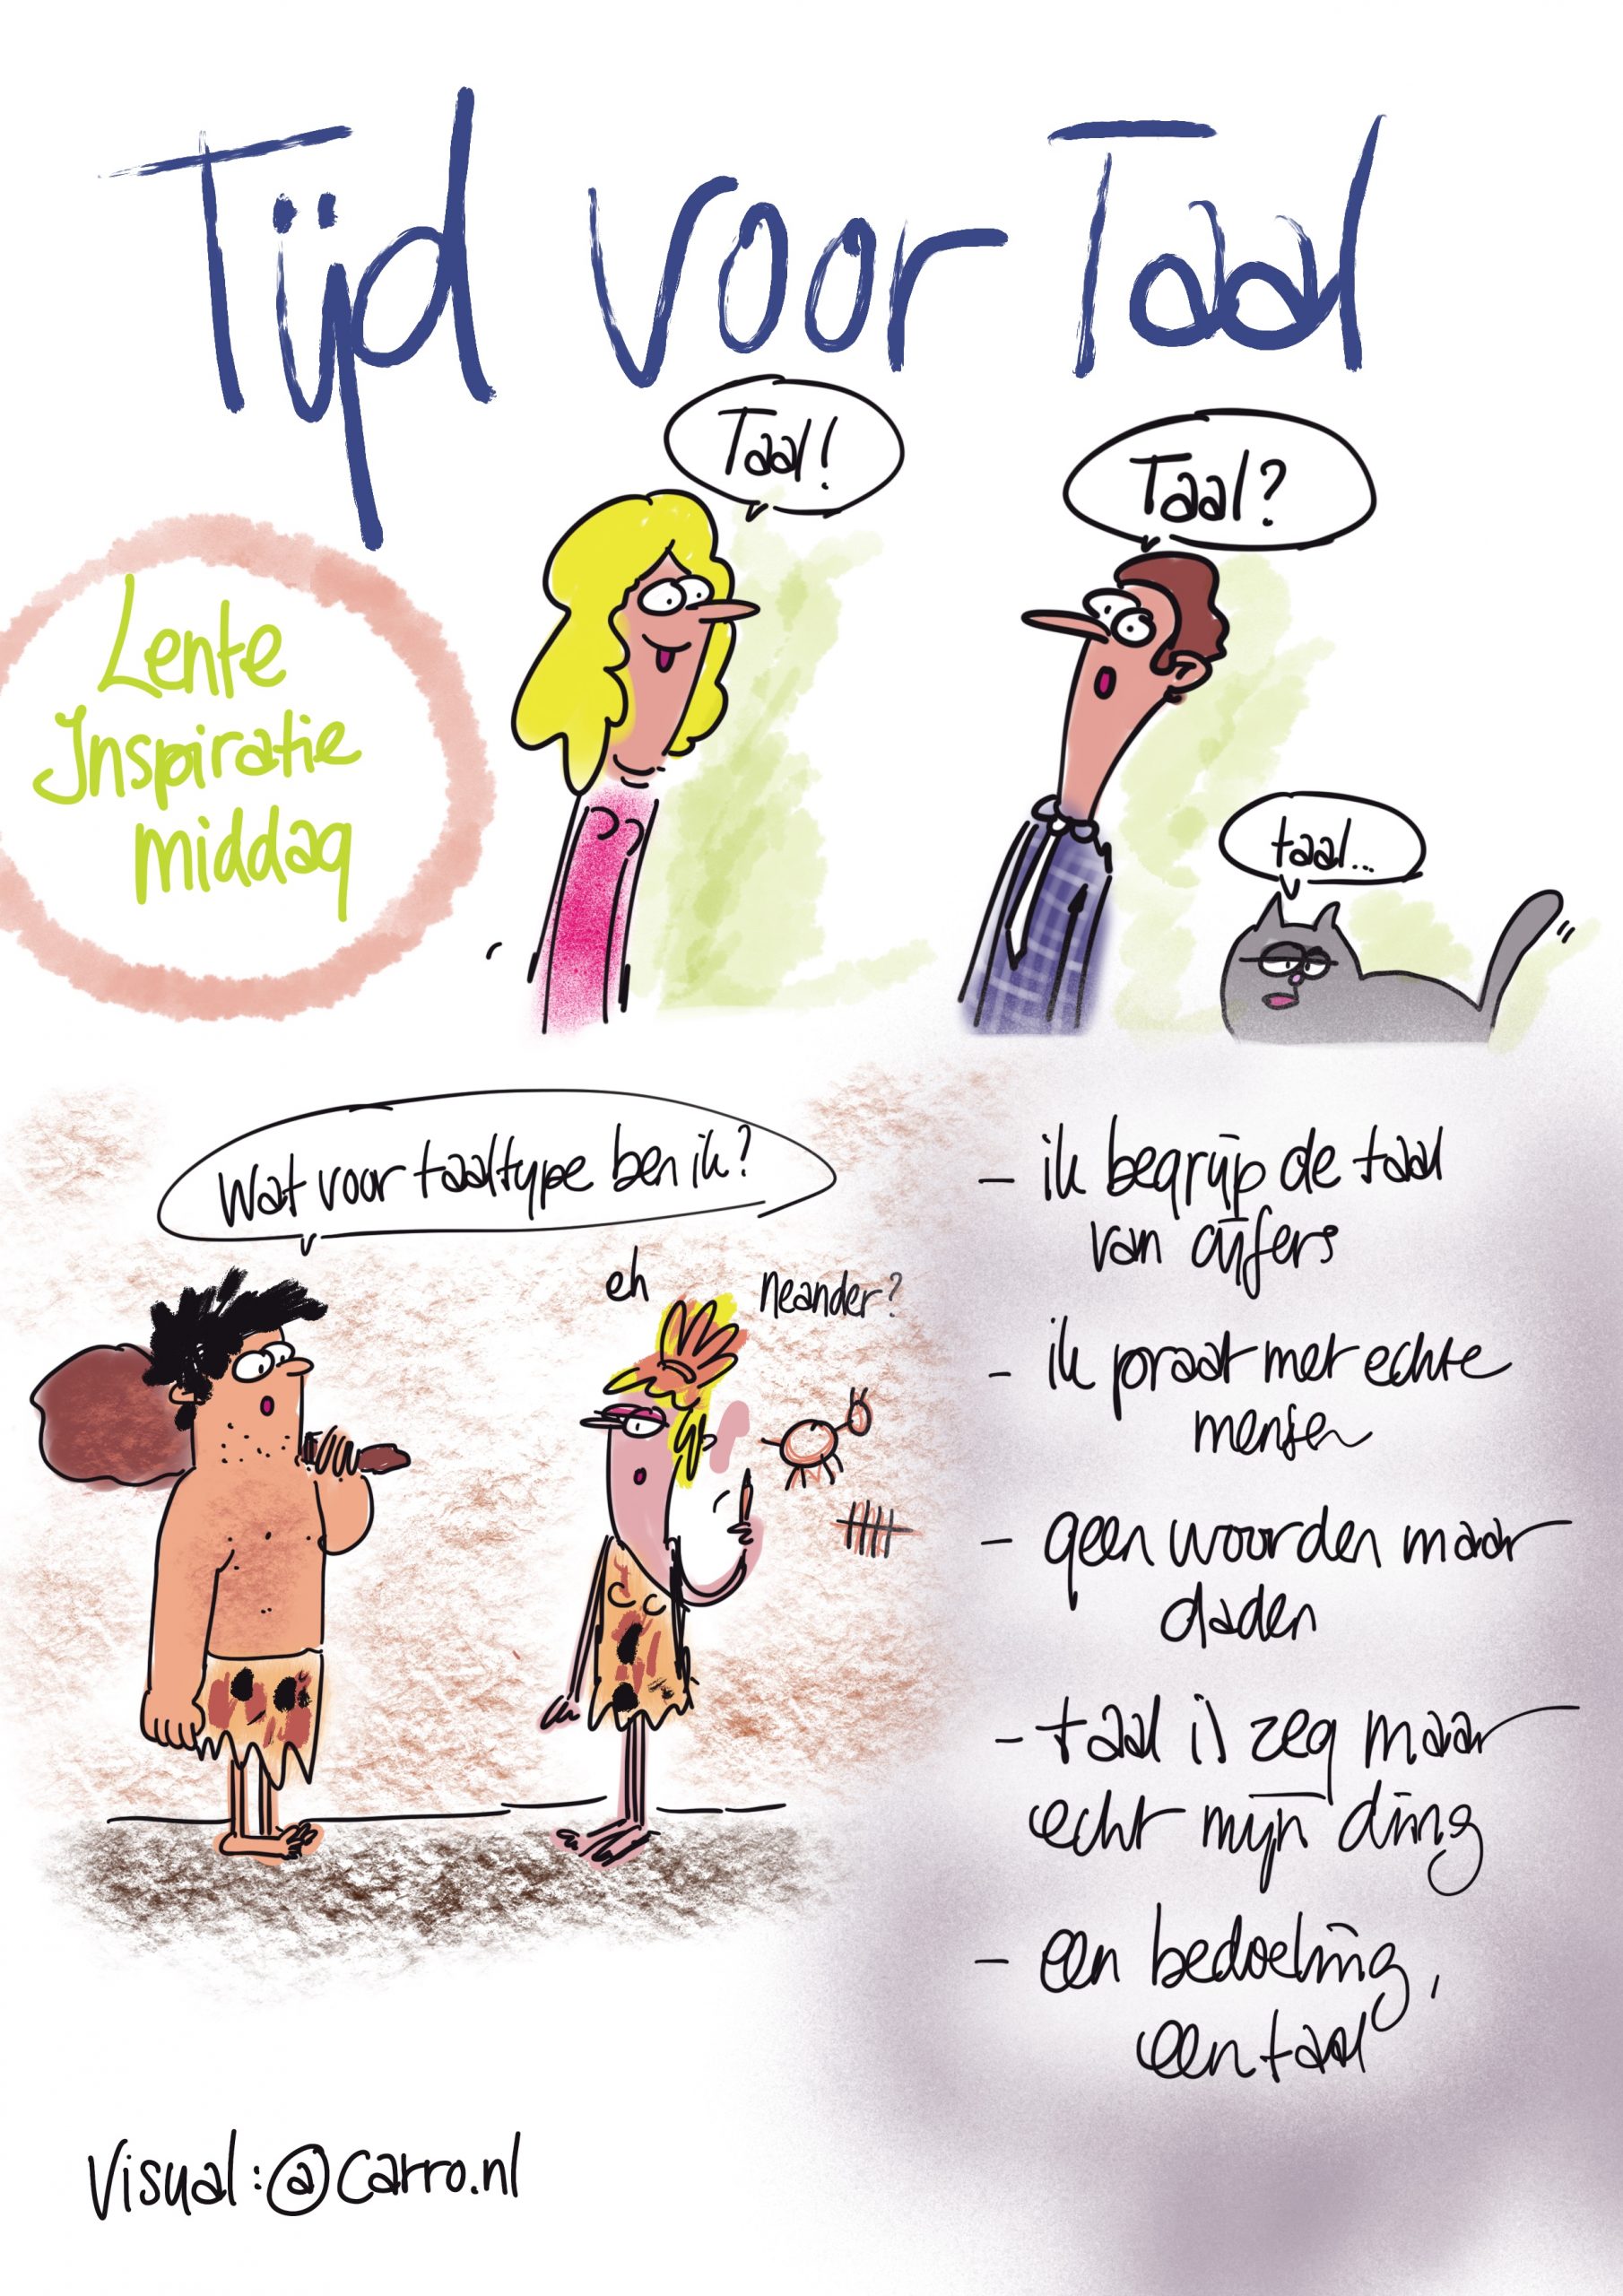 Tijd voor Taal
Taal!
Taal?
Lente
Inspiratie
middag
taal...
Wat voor taaltype ben ik?
eh
neander?
- ik begrijp de taal
van cijfers
- ik praat met echte
mensen
- geen woorden maar
daden
- taal is zeg maar
echt mijn ding
- een bedoeling,
een taal
Visual: @carro.nl